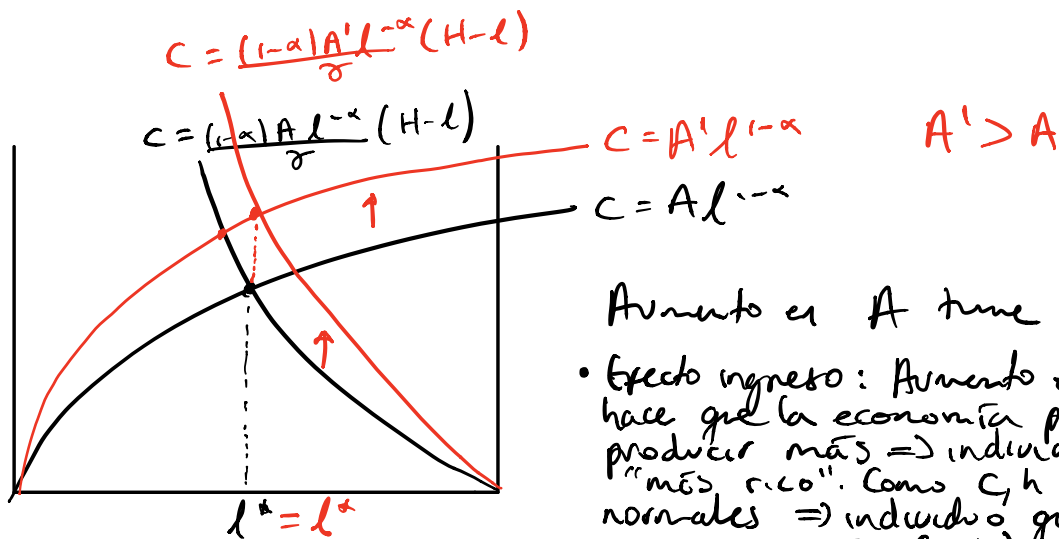 C = (1-α)A'l^-α/γ (H-l)
C = (1-α)A l^-α/γ (H-l)
C = A'l^1-α
A' > A
C = Al^1-α
Aumento en A tiene
• Efecto ingreso: Aumento
hace que la economía
producir más ⇒
"más rico". Como c, h
normales ⇒ individuo
l* = l*